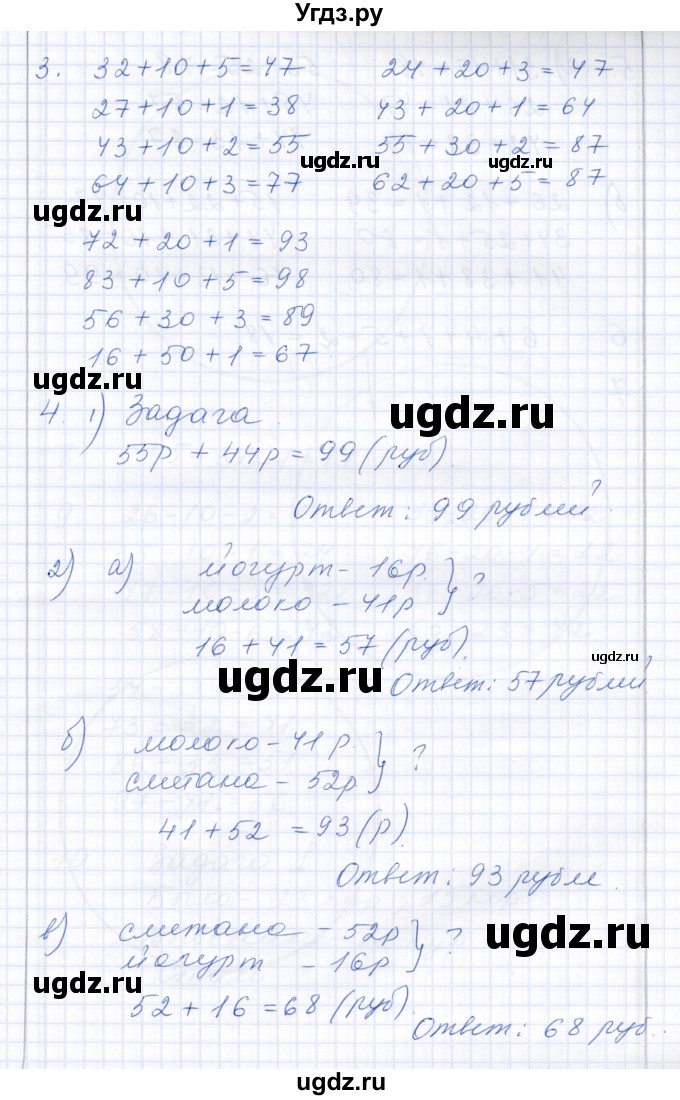 Угдз.ру
3. 32+10+5=47 24+20+3=47
27+10+1=38 43+20+1=64
43+10+2=55 55+30+2=87
ugdz.ru ugdz.ru
64+10+3=77 62+20+5=87
ugdz.ru
72+20+1=93
83+10+5=98
56+30+3=89
16+50+1=67
ugdz.ru
4. 1) Задача.
ugdz.ru
55р + 44р = 99 (руб).
Ответ: 99 рублей
2) а) йогурт - 16р. } ?
молоко - 41р
16 + 41 = 57 (руб).
ugdz.ru
ugdz.ru
Ответ: 57 рублей.
б) молоко - 41 р. } ?
сметана - 52р
41+52 = 93 (р).
Ответ: 93 рубля.
в) сметана - 52р } ?
ugdz.ru
йогурт - 16р
ugdz.ru
52 + 16 = 68 (руб).
Ответ: 68 руб.
ugdz.ru